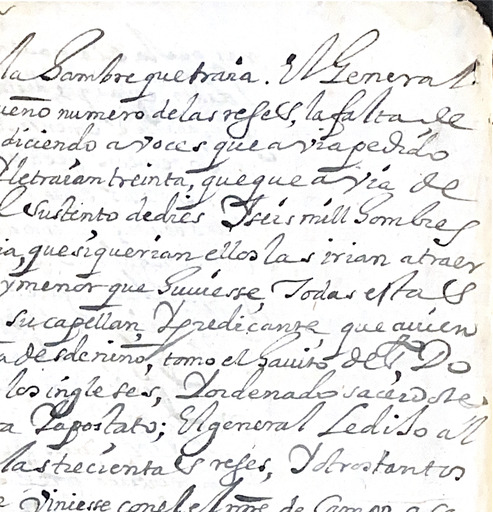 la hambre que traia. El General
numero de las reses, la falta de
diciendo a voces que avia pedido
le traian treinta, que que avia de
sustento de dies Y seis mill hombres
que si querian ellos las irian a traer
y menor que huviesse, Todas estas
su capellan, Y predicante, que
desde niño, tomo el havito de Sto Do
los ingleses, Y ordenado sacerdote
Y apostata; El general Le dixo al
las trecientas reses, Y otros tantos
viniesse con el de